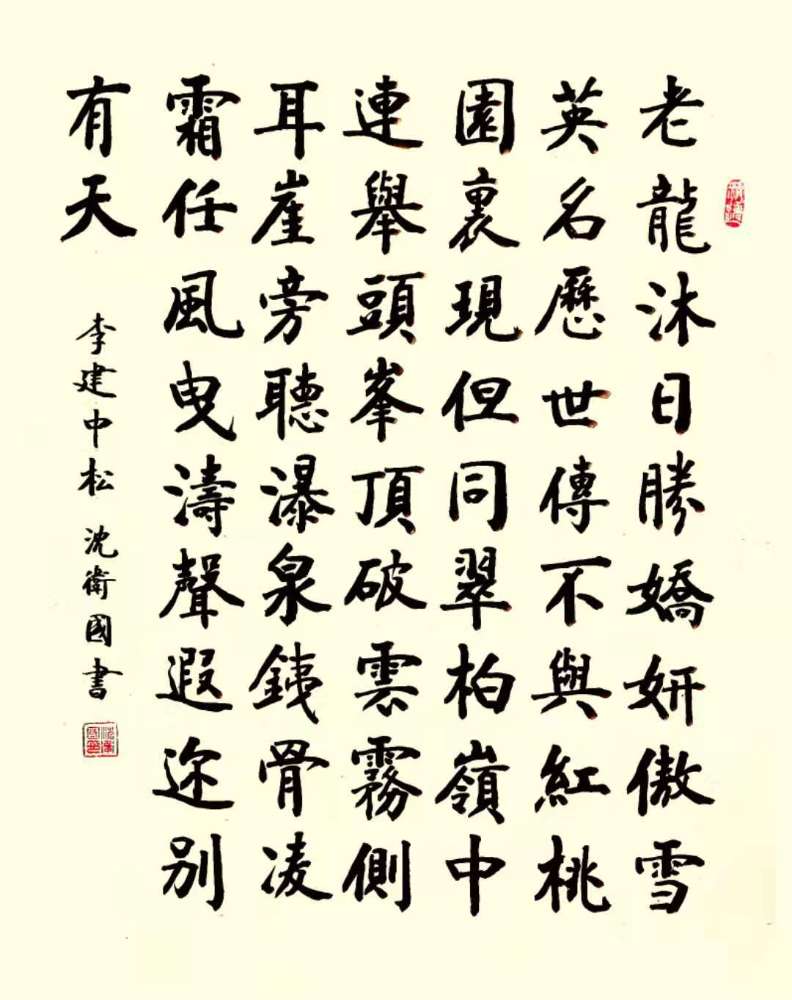 老龍沐日勝嬌妍傲雪
英名歷世傳不與紅桃
園裏現但同翠柏嶺中
連舉頭峯頂破雲霧側
耳崖旁聽瀑泉銕骨凌
霜任風曳濤聲遐迩别
有天
李建中松 沈衛國書